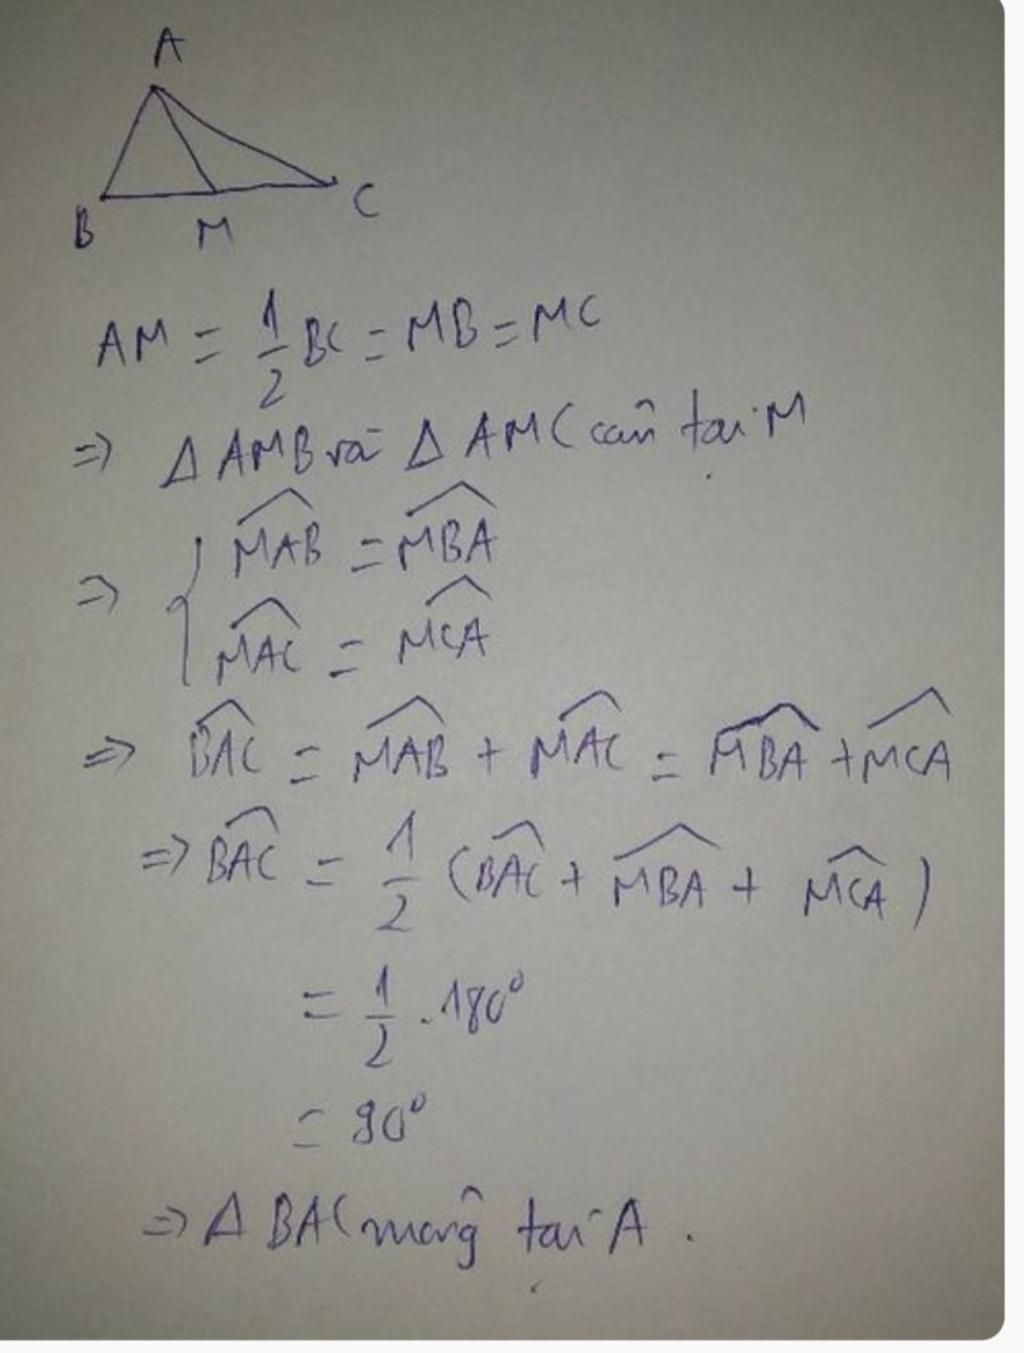 A
B M C
AM = 1/2 BC = MB = MC
=> Δ AMB và Δ AMC cân tại M
=> { \widehat{MAB} = \widehat{MBA}
\widehat{MAC} = \widehat{MCA}
=> \widehat{BAC} = \widehat{MAB} + \widehat{MAC} = \widehat{MBA} + \widehat{MCA}
=> \widehat{BAC} = 1/2 (\widehat{BAC} + \widehat{MBA} + \widehat{MCA})
= 1/2 . 180°
= 90°
=> Δ BAC vuông tại A .